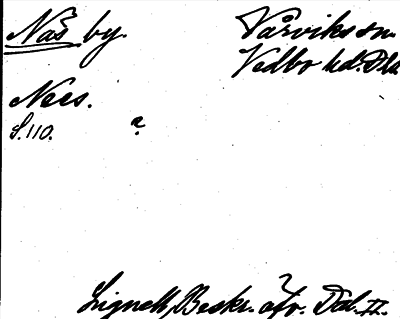 Näs by.
Vårviks sn.
Vedbo hd. Dld.
Nees.
S. 110.
Lignell, Beskr. öfv. Dal. II.